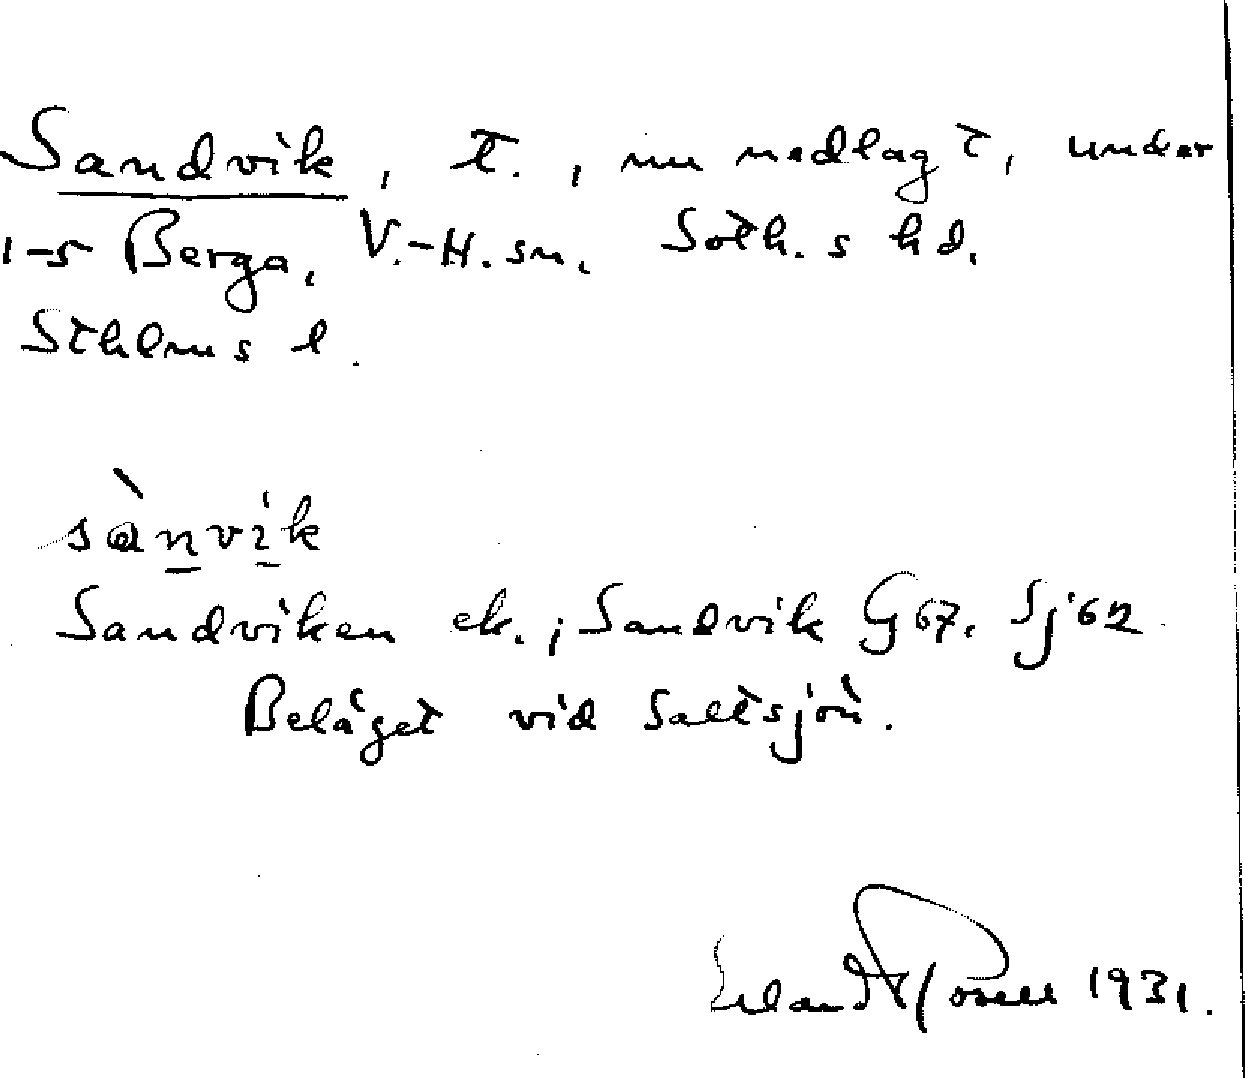 Sandvik, t., nu nedlagt, under
1-5 Berga, V.-H. sn. Soth. s hd.
Sthlms l.
sànvik
Sandviken ek.; Sandvik G 67. Sj '62
Beläget vid Saltsjön.
Erland Rosell 1931.